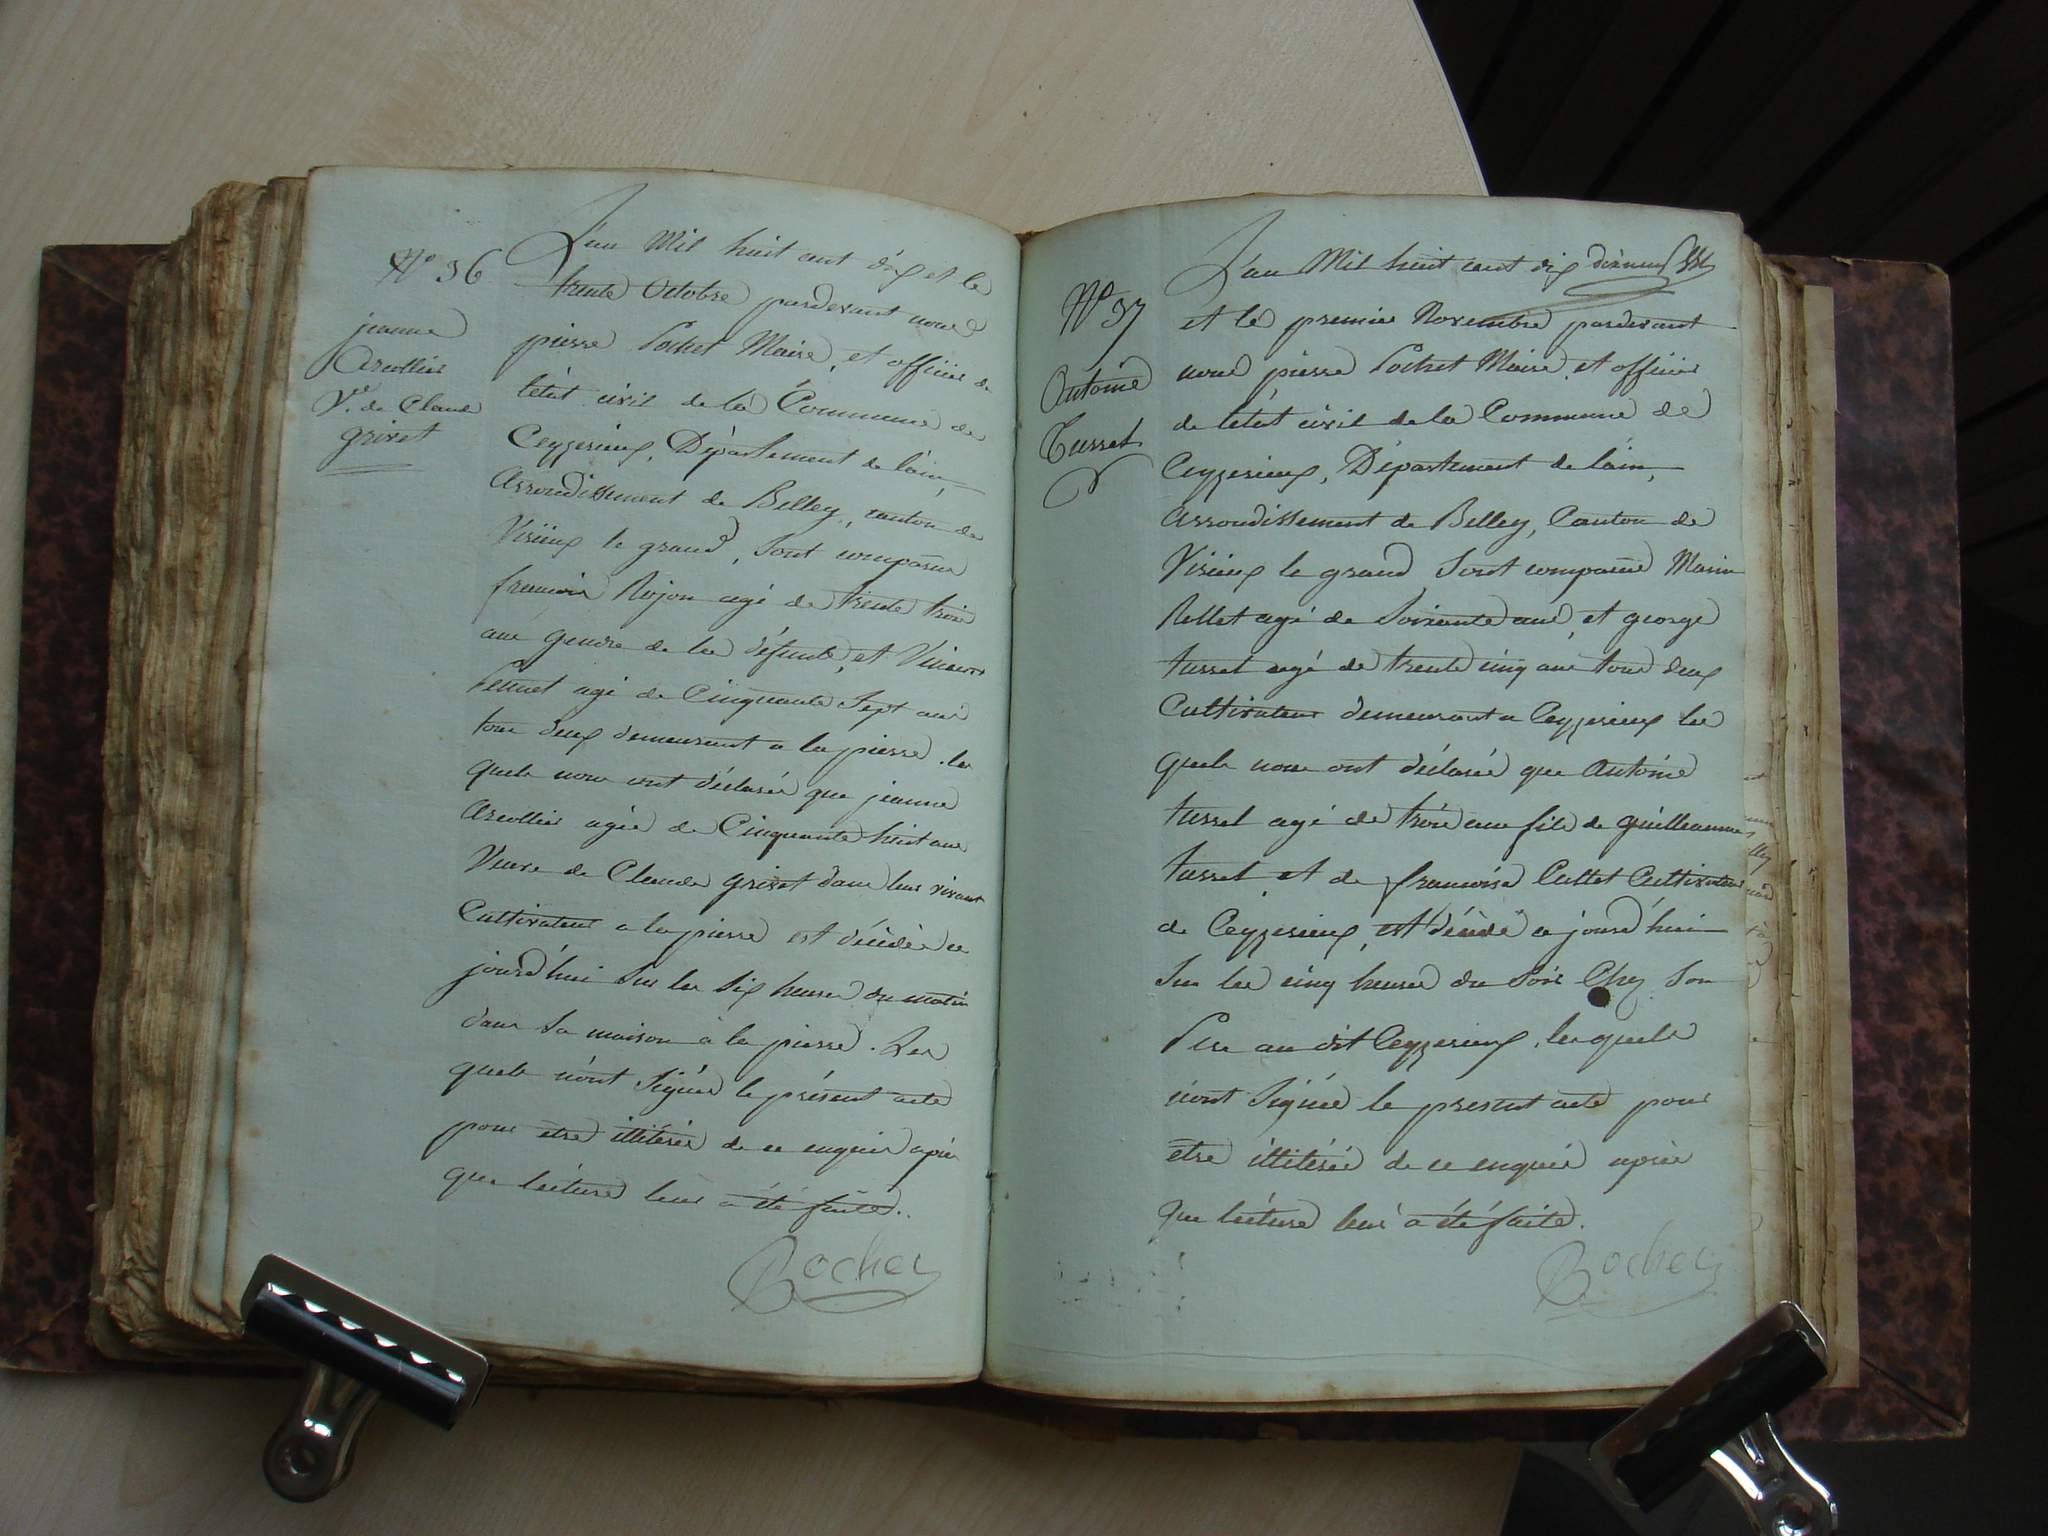 N° 36
jeanne
Arcollier
Ve. de Claude
grivet
L'an Mil huit cent dix et le
trente Octobre pardevant nous
pierre Pochet Maire, et officier de
l'état civil de la Commune de
Ceyzerieux, Département de l'ain,
Arrondissement de Belley, canton de
Virieux le grand, Sont comparus
francois Rojon agé de trente trois
ans gendre de la défunte, et Vincent
agé de Cinquante Sept ans
tous deux demeurant a la pierre. les
quels nous ont déclarés que jeanne
Arcollier agée de Cinquante huit ans
Veuve de Claude grivet dans leur vivant
Cultivateurs a la pierre est décédée ce
jourd'hui Sur les Six heures du matin
dans Sa maison à la pierre. Les
quels n'ont Signés le présent acte
pour être illiterés de ce enquis après
que lécture leur a été faite.
Pochet
N° 37
Antoine
Tusset
L'an Mil huit cent dix dixneuf
et le premier Novembre pardevant
nous pierre Pochet Maire, et officier
de l'état civil de la Commune de
Ceyzerieux, Département de l'ain,
Arrondissement de Belley, Canton de
Virieux le grand Sont comparus Marin
Rellet agé de Soixante ans, et george
tusset agé de trente cinq ans tous deux
Cultivateurs demeurant a Ceyzerieux les
quels nous ont déclarés que Antoine
tusset agé de trois ans fils de guilleaume
tusset et de francoise Cullet Cultivateurs
de Ceyzerieux, est décédé ce jourd'hui
Sur les cinq heures du Soir Chez Son
Pere au dit Ceyzerieux, les quels
n'ont Signés le present acte pour
etre illiterés de ce enquis après
que lécture leur a été faite.
Pochet